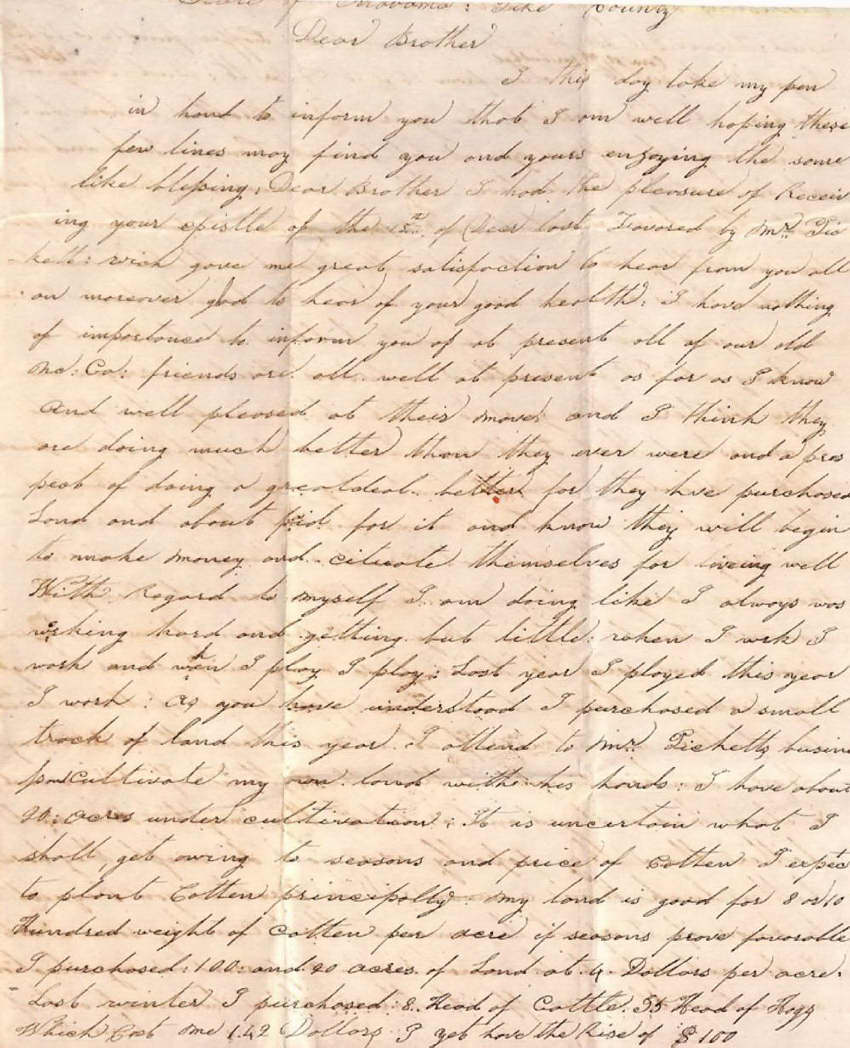 State of Alabama: Pike County
Dear Brother
I this day take my pen
in hand to inform you that I am well hoping these
few lines may find you and yours enjoying the same
like blessing, Dear Brother I had the pleasure of Receiv
ing your epistle of the 15th of Decr last Favored by Mr. Pic
kett: wich gave me great satisfaction to hear from you all
an moreover glad to hear of your good health: I have nothing
of importance to inform you of at present all of our old
No: Ca: friends are all well at present as far as I know
and well pleased at their move and I think they
are doing much better than they ever were and a pros
pect of doing a greatdeal better for they hve purchased
Land and about paid for it and know they will begin
to make money and cituate themselves for liveing well
With Regard to myself I am doing like I always was
working hard and getting but little: when I work I
work and when I play I play: Last year I played this year
I work: As you have understood I purchased a small
track of land this year. I attend to Mr. Picketts busin
cultivate my own land with his hands: I have about
acres under cultivation: It is uncertain what I
shall get owing to seasons and price of Cotten I expec
to plant Cotten principally: my land is good for 8 or 10
Hundred weight of Cotten per acre if seasons prove favorable
I purchased: 100: and 20 acres of Land at 4. Dollars per acre.
Last winter I purchased: 8. Head of Cattle. 55 Head of Hogs
Which Cost me 142 Dollars I yet have the Rise of $100